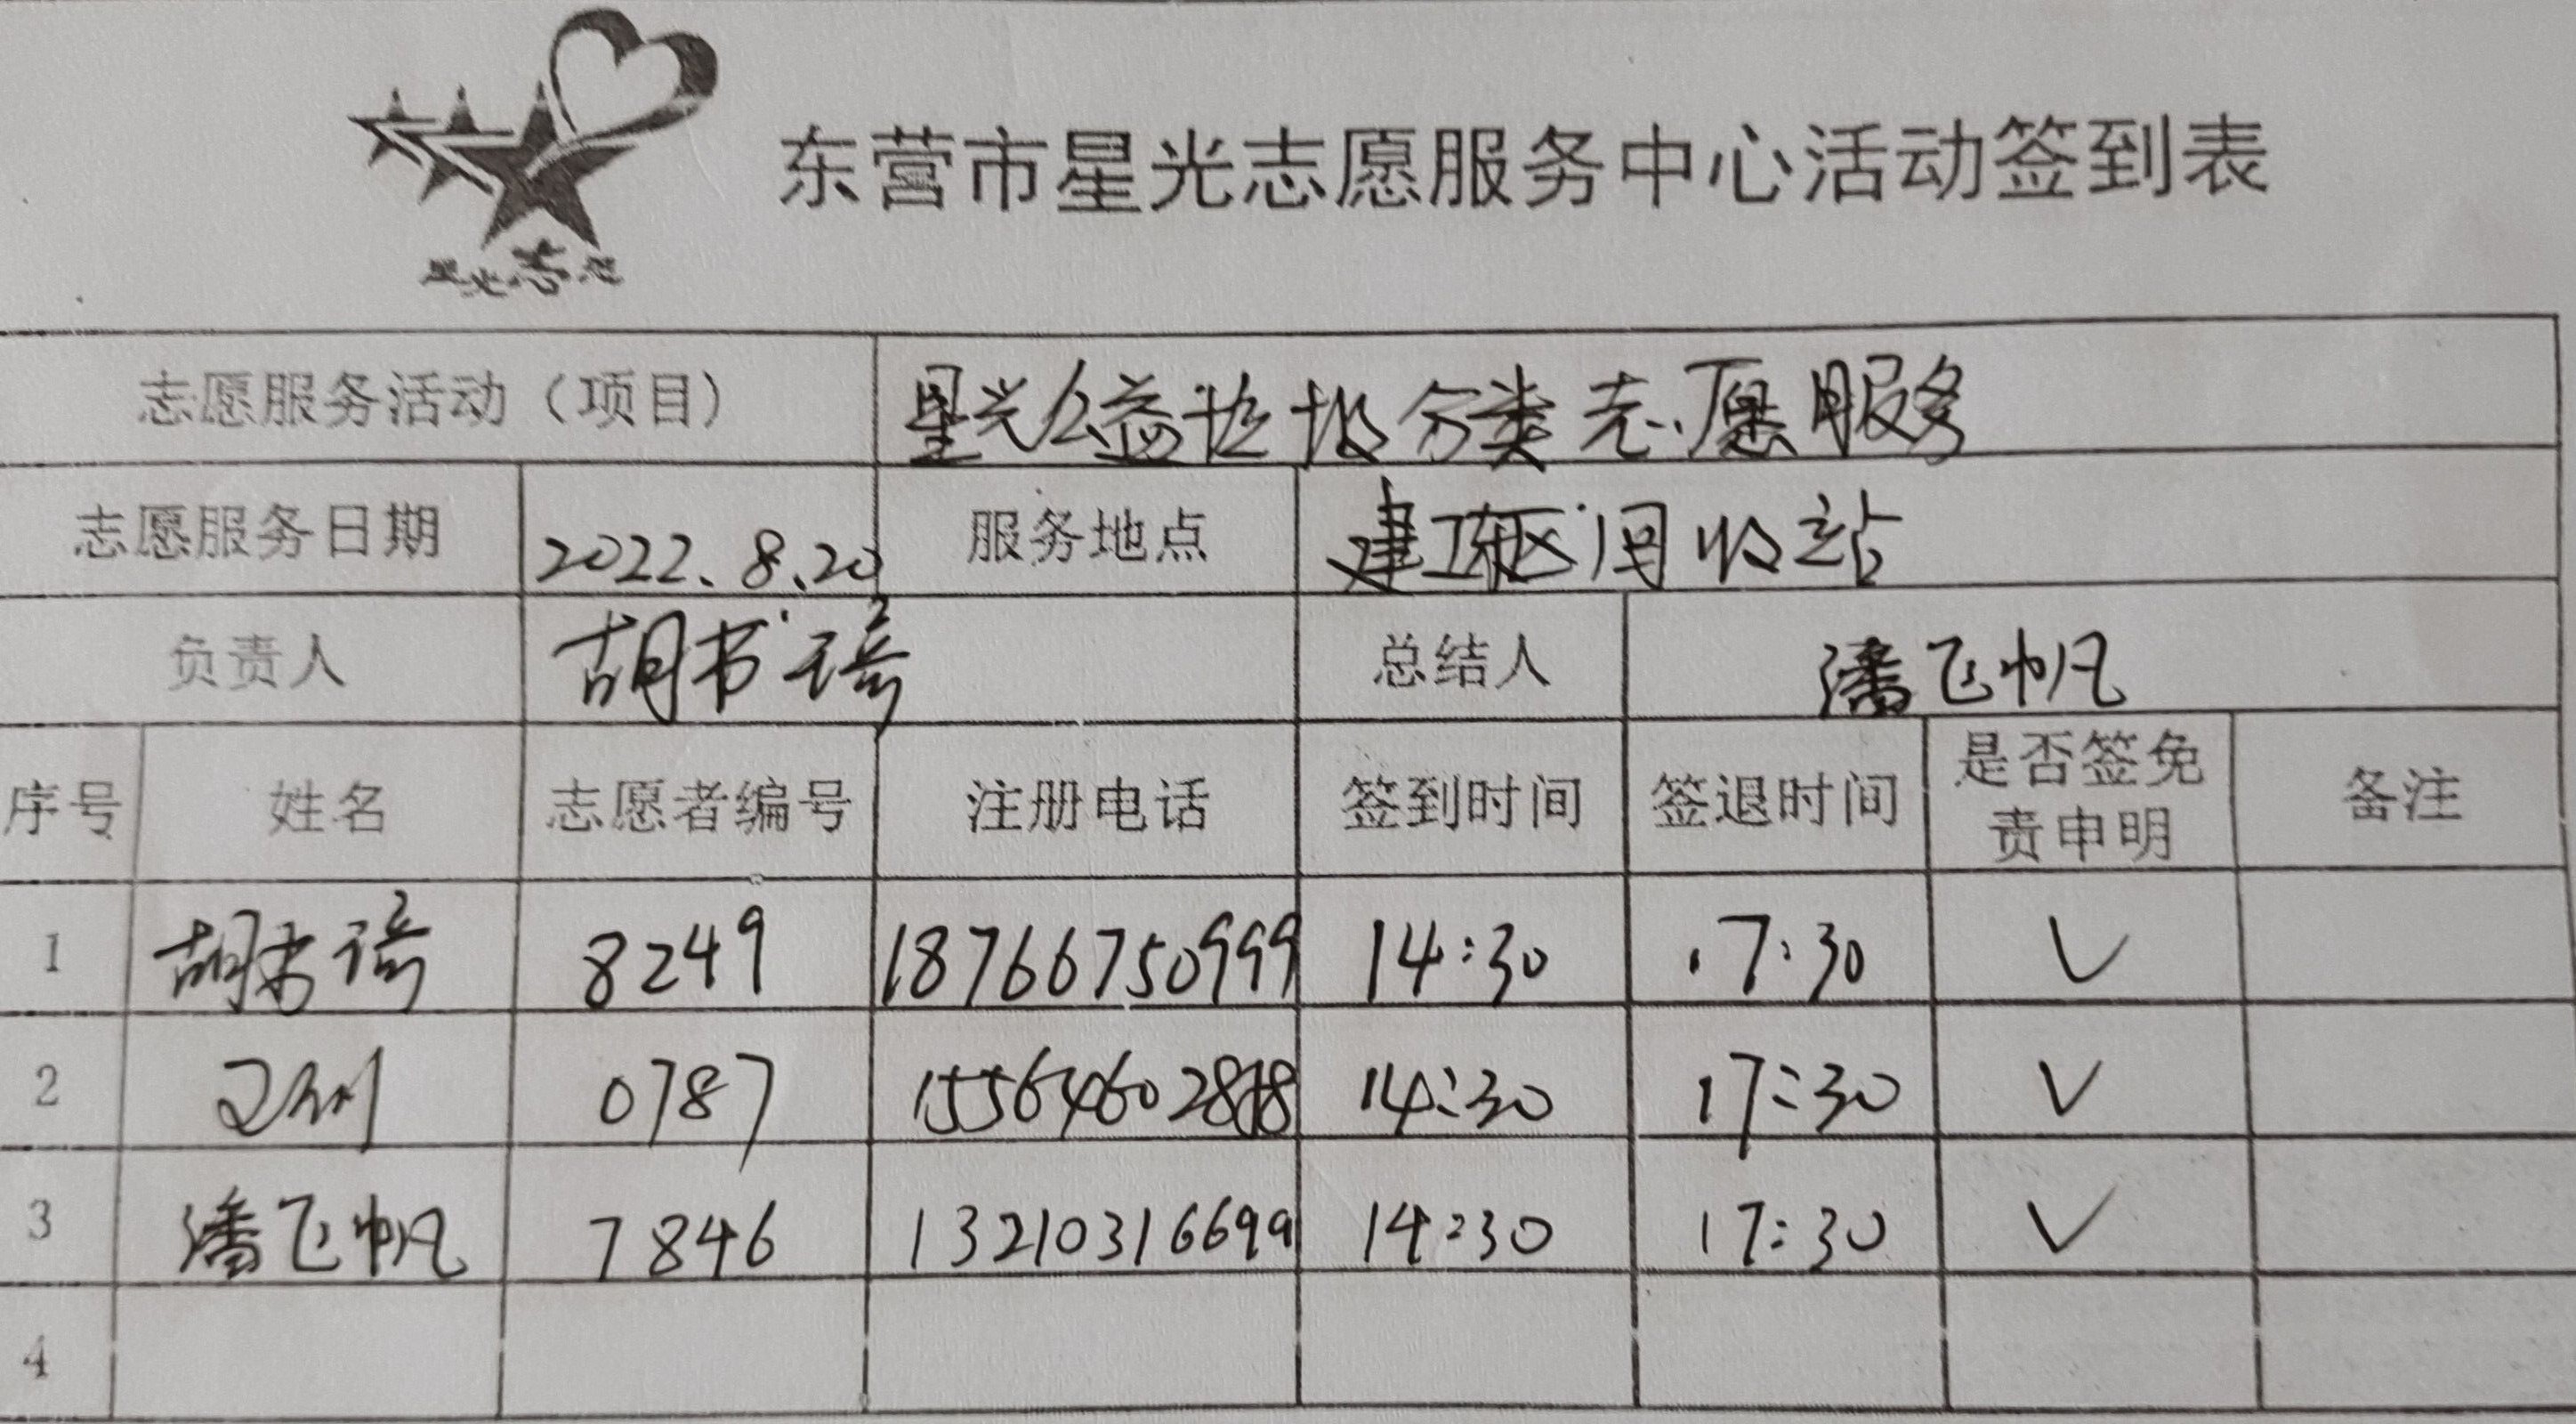 东营市星光志愿服务中心活动签到表
星光志愿
志愿服务活动（项目） 星光公益垃圾分类志愿服务
志愿服务日期 2022.8.20 服务地点 回收站
负责人 胡书 总结人 潘飞帆
序号 姓名 志愿者编号 注册电话 签到时间 签退时间 是否签免责申明 备注
1 胡书 8249 18766750999 14:30 17:30 √
2 0787 14:30 17:30 √
3 潘飞帆 7846 13210316699 14:30 17:30 √
4